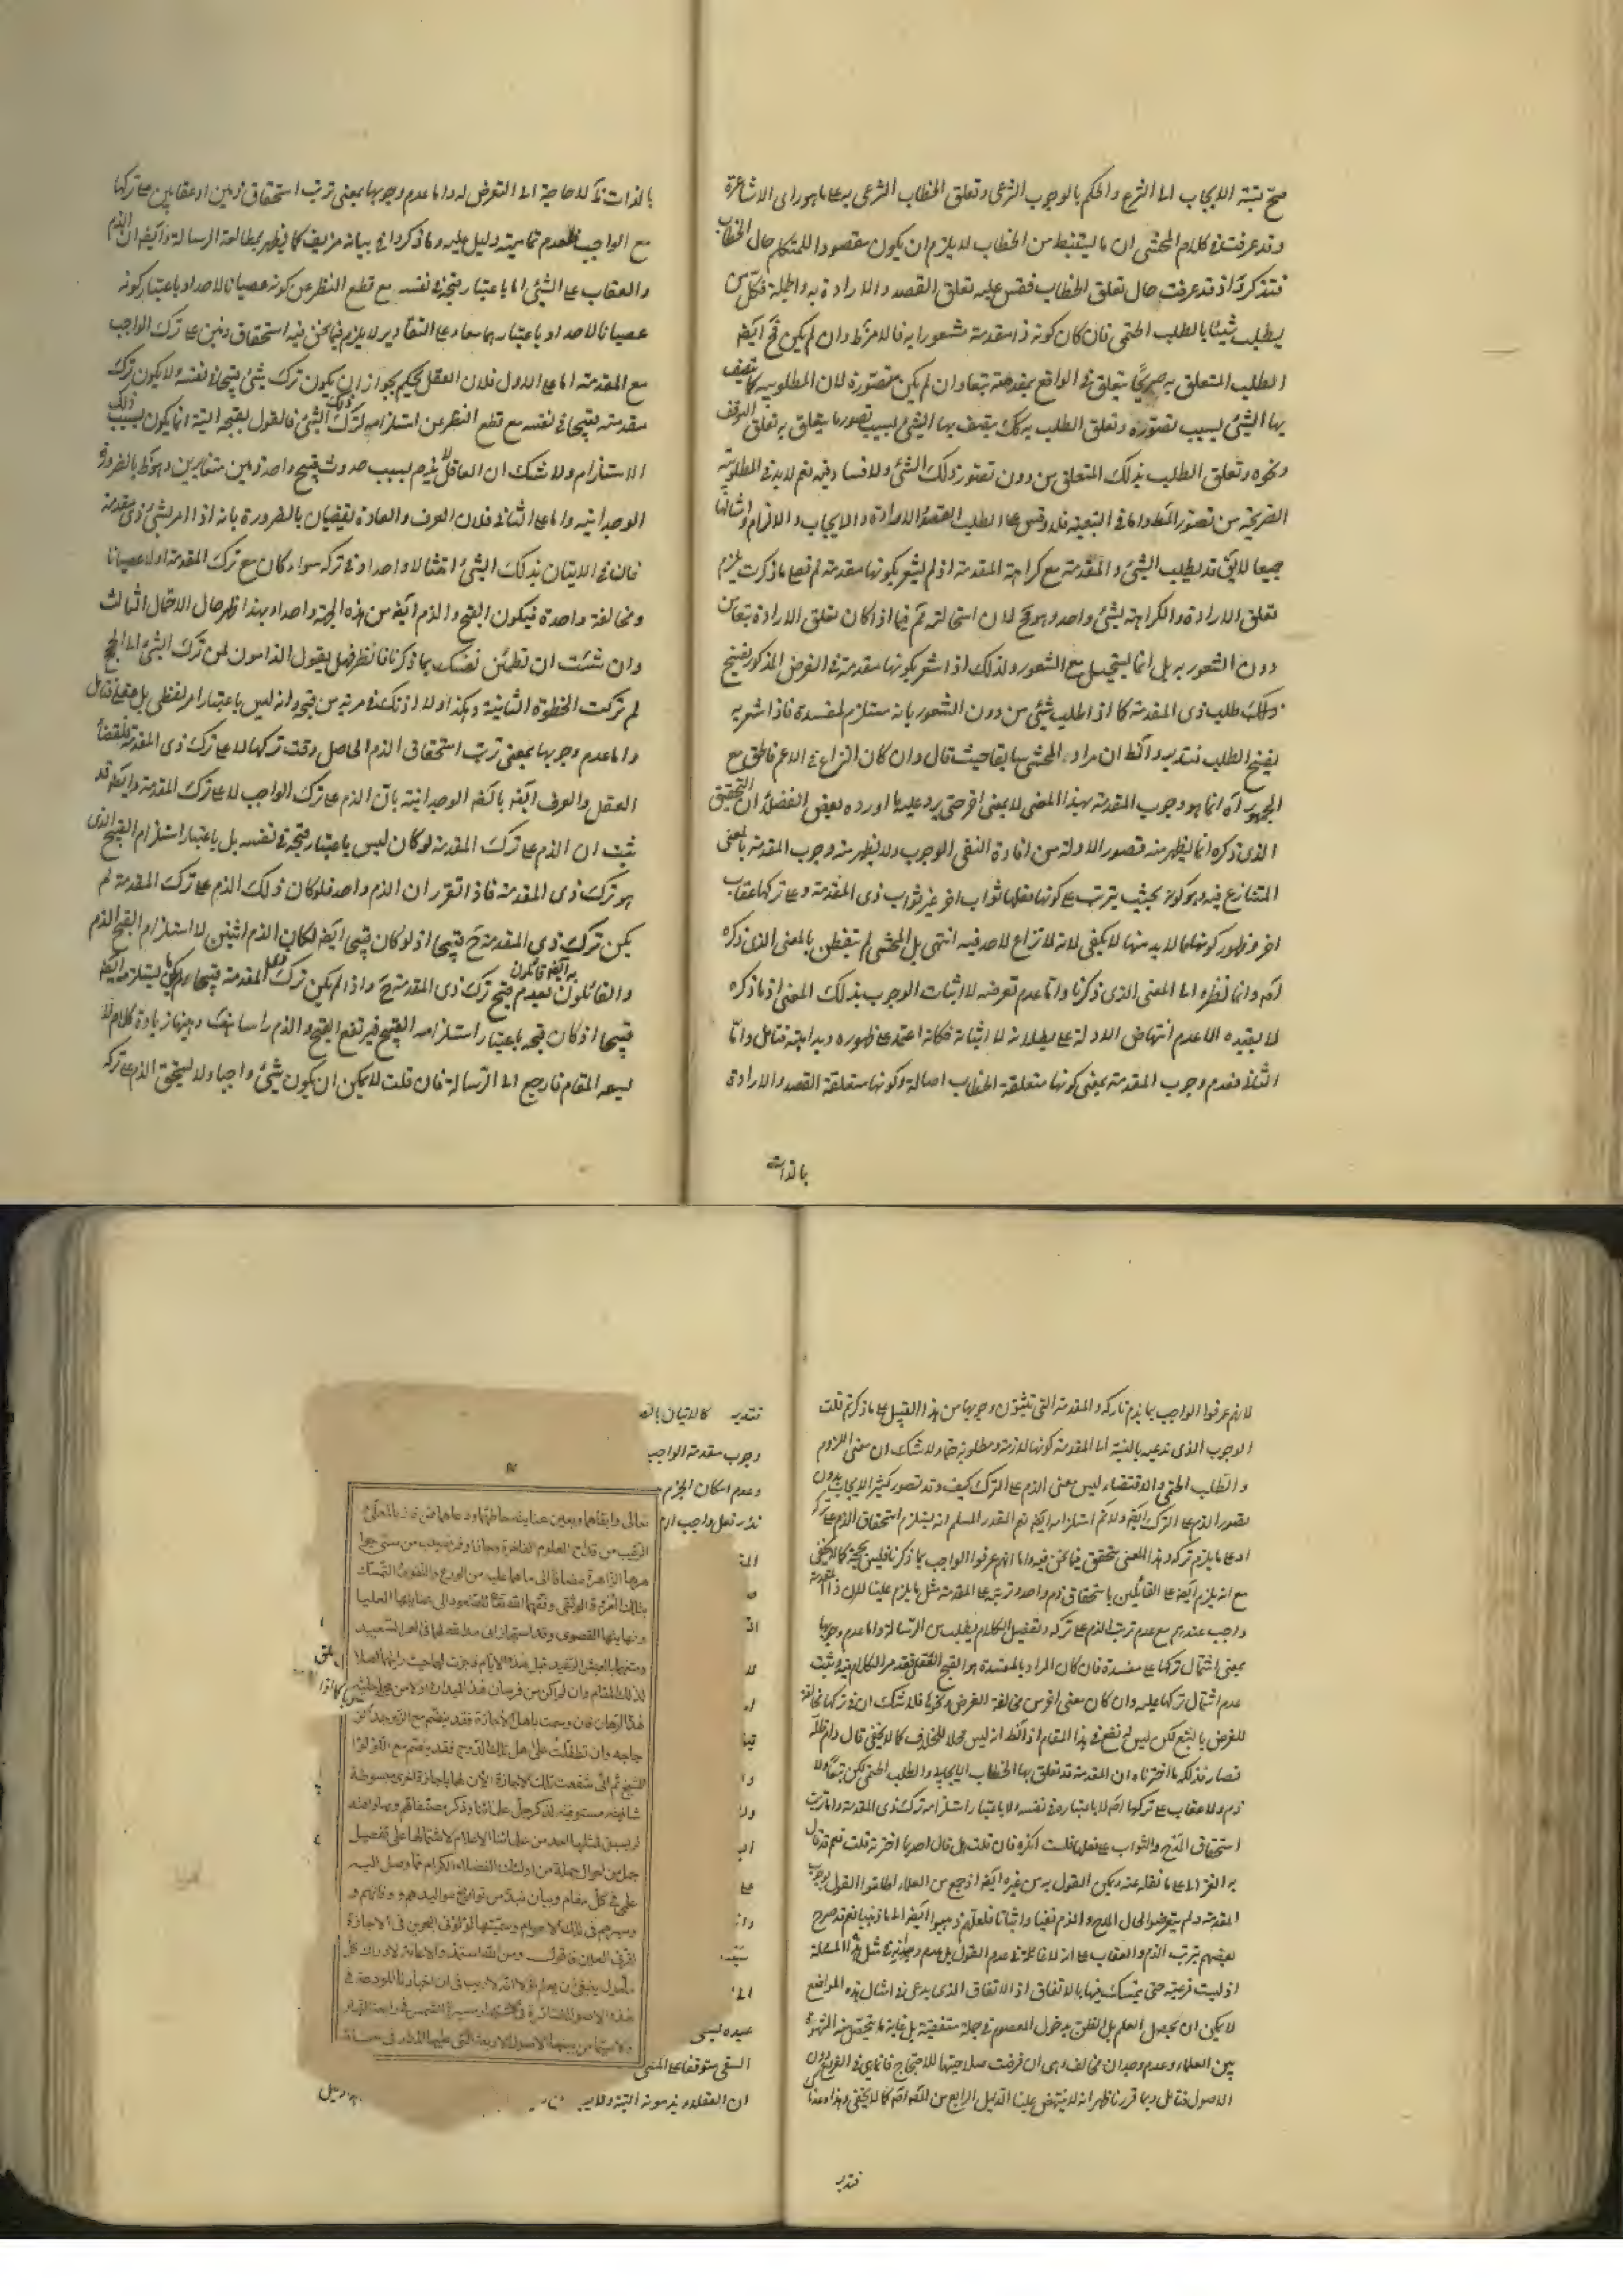 صح نسبة الايجاب الى الشرع والحكم بالوجوب الشرعى وتعلق الخطاب الشرعى به على ما هو راى الاشاعرة
وقد عرفت فى كلام المحشى ان ما يستنبط من الخطاب لا يلزم ان يكون مقصودا للمتكلم حال الخطاب
فتذكر ثم اذ قد عرفت حال تعلق الخطاب فقس عليه تعلق القصد والارادة به وبالجملة فكل من
يطلب شيئا بالطلب الحتمى فان كان كونه ذا مقدمة مشعورا به فالامر ظ وان لم يكن فح ايض
الطلب المتعلق به صريحا يتعلق فى الواقع بمقدمته تبعا وان لم يكن متصورة لان المطلوبية كما يتصف
بها الشئ بسبب تصوره وتعلق الطلب به كك يتصف بها الشئ بسبب تصور ما يتعلق به تعلق التوقف
ونحوه وتعلق الطلب بذلك المتعلق من دون تصور ذلك الشئ ولا فساد فيه نعم لا بد فى المطلوبية
الصريحة من تصور المط واما فى التبعية فلا وقس على الطلب القصد والارادة والايجاب والالزام وامثالها
جميعا لا يق قد يطلب الشئ والمقدمة مع كراهة المقدمة اذ لم يشعر بكونها مقدمة له فعلى ما ذكرت يلزم
تعلق الارادة والكراهة بشئ واحد وهو مح لان استحالته ثم فيما اذا كان تعلق الارادة تبعا من
دون الشعور به بل انما يستحيل مع الشعور ولذلك اذا شعر بكونها مقدمة فى الفرض المذكور يفسخ
ذلك طلب ذى المقدمة كما اذا طلب شئ من دون الشعور بانه مستلزم لمفسدة فاذا شعر به
يفسخ الطلب فتدبر والظ ان مراد المحشى سابقا حيث قال وان كان النزاع فى الاعم فالحق مع
الجمهور اه انما هو وجوب المقدمة بهذا المعنى لا بمعنى اخر حتى يرد عليه ما اورده بعض الفضلاء ان التحقيق
الذى ذكره انما يظهر منه قصور الادلة من افادة النفى الوجوب ولا يظهر منه وجوب المقدمة بالمعنى
المتنازع فيه وهو كونه بحيث يترتب على كونها فعلها ثواب اخر غير ثواب ذى المقدمة وعلى تركها عقاب
اخر وظهور كونها مما لا بد منها لا يكفى لانه لا نزاع لاحد فيه انتهى بل المحشى لم يتفطن بالمعنى الذى ذكره
اصم وانما نظره الى المعنى الذى ذكرنا واما عدم تعرضه لاثبات الوجوب بذلك المعنى اذ ما ذكره
لا يفيده الا عدم انتهاض الادلة على بطلانه لا اثباته فكانه اعتمد على ظهوره وبداهته فتامل واما
الثانى فعدم وجوب المقدمة بمعنى كونها متعلقة الخطاب اصالة وكونها متعلقة القصد والارادة
بالذات
بالذات فلا حاجة الى التعرض له واما عدم وجوبها بمعنى ترتب استحقاق ذمين او عقابين على تركها
مع الواجب فلعدم تمامية دليل عليه وما ذكروا فى بيانه مزيف كما يظهر بمطالعة الرسالة وايض ان الذم
والعقاب على الشئ اما باعتبار قبحه فى نفسه مع قطع النظر عن كونه عصيانا لاحد او باعتبار كونه
عصيانا لاحد او باعتبارهما معا وعلى التقادير لا يلزم فيما نحن فيه استحقاق ذمين على ترك الواجب
مع المقدمة اما على الاول فلان العقل يحكم بجواز ان يكون ترك شئ قبيحا فى نفسه ولا يكون ترك
مقدمته قبيحا فى نفسه مع قطع النظر عن استلزامه لترك ذلك الشئ فالقول بقبحه البتة انما يكون بسبب ذلك
الاستلزام ولا شك ان العاقل لا يذم بسبب حدوث قبيح واحد ذمين متغايرين وهو ظ بالضرورة
الوجدانية واما على الثانى فلان العرف والعادة يقضيان بالضرورة بانه اذا امر بشئ ذى مقدمة
فان فى الاتيان بذلك الشئ امتثالا واحدا وفى تركه سواء كان مع ترك المقدمة او لا عصيانا
ومخالفة واحدة فيكون القبح والذم ايض من هذه الجهة واحدا وبهذا ظهر حال الاحتمال الثالث
وان شئت ان تطمئن نفسك بما ذكرنا فانظر فهل يقول الذامون لمن ترك الشئ الى الحج
لم تركت الخطوة الثانية وهكذا
واما عدم وجوبها بمعنى ترتب استحقاق الذم الحاصل وقت تركها لا على ترك ذى المقدمة فلقضاء
العقل والعرف ايض بالضم الوجدانية بان الذم على ترك الواجب لا على ترك المقدمة وايض قد
ثبت ان الذم على ترك المقدمة لو كان ليس باعتبار قبحه فى نفسه بل باعتبار استلزام القبيح الذى
هو ترك ذى المقدمة فاذا تقرر ان الذم واحد فلو كان ذلك الذم على ترك المقدمة لم
يكن ترك ذى المقدمة ح قبيحا اذ لو كان قبيحا ايض لكان الذم اثنين لاستلزام القبح الذم
والقائلون بعدم قبح ترك ذى المقدمة ح واذا لم يكن ترك المقدمة قبيحا
قبيحا اذ كان قبحه باعتبار استلزامه القبيح فيرتفع القبح والذم راسا هف وههنا زيادة كلام لا
يسعه المقام فارجع الى الرسالة فان قلت لا يمكن ان يكون شئ واجبا ولا يستحق الذم على تركه
لانهم عرفوا الواجب بما يذم تاركه والمقدمة التى تثبتون وجوبها من هذا القبيل على ما ذكرتم قلت
الوجوب الذى ندعيه بالنسبة الى المقدمة كونها لازمة ومطلوبة حتما ولا شك ان معنى اللزوم
والطلب الحتمى والاقتضاء ليس معنى الذم على الترك كيف وقد تصور كثيرا الايجاب بدون
تصور الذم على الترك ايض ولا ثم استلزامه ايض نعم القدر المسلم انه يستلزم استحقاق الذم على تركه
او على ما يلزم تركه وهذا المعنى متحقق فيما نحن فيه واما انهم عرفوا الواجب بما ذكرنا فليس بحجة كما لا يخفى
مع انه يلزم ايض على القائلين باستحقاق ذم واحد وترتبه على المقدمة مثل ما يلزم علينا لان ذا المقدمة
واجب عندهم مع عدم ترتب الذم على تركه وتفصيل الكلام يطلب من الرسالة واما عدم وجوبها
بمعنى اشتمال تركها على مفسدة فان كان المراد بالمفسدة هو القبح العقلى فقد مر الكلام فيه وثبت
عدم اشتمال تركها عليه وان كان معنى اخر من مخالفة الغرض ونحوها فلا شك ان فى تركها مخالفة
للغرض بالتبع لكن ليس له نفع فى هذا المقام اذ الظ انه ليس محلا للخلاف كما لا يخفى قال دام ظله
فصار فذلكة ما اخترناه ان المقدمة قد تعلق بها الخطاب الايجابى والطلب الحتمى لكن تبعا ولا
ذم ولا عقاب على تركها اصم لا باعتباره فى نفسه ولا باعتبار استلزامه ترك ذى المقدمة واما ترتب
استحقاق المدح والثواب على فعلها فلست انكره فان قلت هل قال احد بما اخترته قلت نعم قد قال
به الغزالى على ما نقله عنه ويمكن القول به من غيره ايض اذ جمع من العلماء اطلقوا القول بوجوب
المقدمة ولم يتعرضوا لحال المدح والذم نفيا واثباتا فلعلهم ذهبوا ايض الى ما ذهبنا نعم قد صرح
بعضهم بترتب الذم والعقاب على انه لا غائلة فى عدم القول بل عدم وجدانه فى مثل هذه المسئلة
اذ ليست فرعية حتى يتمسك فيها بالاتفاق اذ الاتفاق الذى يدعى فى امثال هذه المواضع
لا يمكن ان يحصل العلم بل الظن بدخول المعصوم فى جملة متفقيه بل غاية ما يتحقق منه الشهرة
بين العلماء وعدم وجدان مخالف وهى ان فرضت صلاحيتها للاحتجاج فانما هى فى الفروع دون
الاصول فتامل وبما قررنا ظهر انه لا ينتهض علينا الدليل الرابع من اصم كما لا يخفى وهذا
فتدبر
فتدبر كالاتيان بالصـ
وجوب مقدمة الواجب
وعدم امكان الجزم
نذر فعل واجب
تعالى وابقاهما وبعين عنايته حاطهما ورعاهما ممن فاز بالمعلى
الرقيب من قداح العلوم الفاخرة وحاز اوفر نصيب من سنى جوا
هرها الزاهرة مضافا الى ما هما عليه من الورع والتقوى والتمسك
بتلك العروة الوثقى وفقهما الله تعالى للصعود الى اعلى العليا
ونهايتها القصوى وقد استجازانى
لذلك المقام وان لم اكن من فرسان هذا الميدان ولا من
هذا الرهان فان وسمت باهل الاجازة فقد ينظم مع
جاجه وان تطفلت على اهل تلك فقد ينضم مع اللؤلؤ
ثم انى شفعت تلك الاجازة الان لهما باجازة اخرى مبسوطة
شافية مستوفية لذكر جل علمائنا وذكر مصنفاتهم
لم يسبق لمثلها احد من علمائنا الاعلام لاشتمالها على تفصيل
جمل من احوال جملة من اولئك الفضلاء الكرام مما وصل اليه
علمى فى كل مقام وبيان نبذ من تواريخ مواليدهم ووفاتهم و
وسيرهم فى تلك الاعوام وسميتها لؤلؤتى البحرين فى الاجازة
لقرتى العينين فاقول ومن الله استمد الاعانة لادراك كل
مأمول ينبغى ان يعلم اولا انه لا ريب فى ان اخبارنا المودعة فى
هذه الاصول
ولا سيما من بينها الاصول الاربعة التى عليها المدار فى
عبده ليس
السقى متوقفا على المشى
ان العقلاء يذمونه البتة ولا